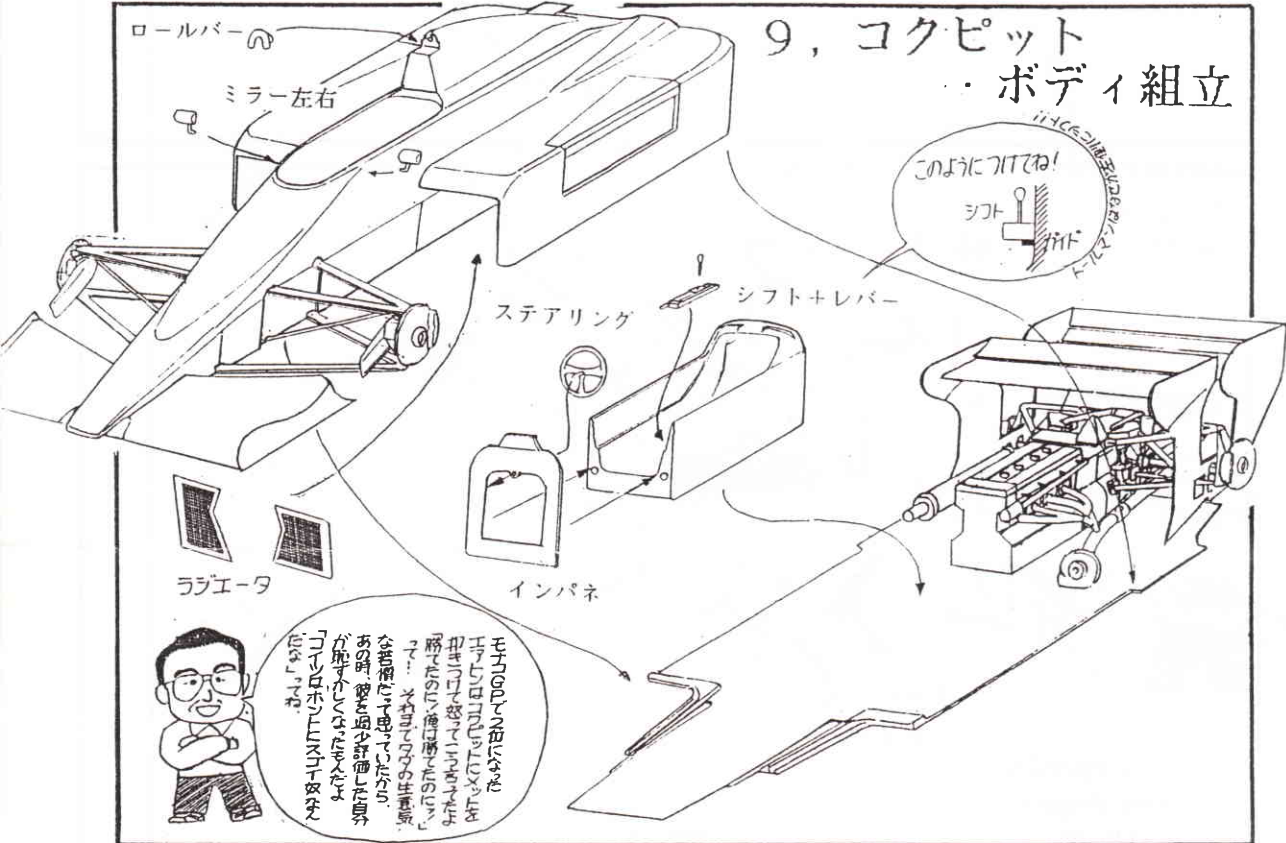 9, コクピット
・ボディ組立
ロールバー
ミラー左右
このようにつけてね!
シフト
ガイド
ステアリング
シフト+レバー
ラジエータ
インパネ
モナコGPで2位になった
エアトンはコクピットにメットを
叩きつけて怒ってこう言ってたよ
「勝てたのに!俺は勝てたのにァ!」
って! それまでタダの生意気
な若僧だって思っていたから、
あの時、彼を過少評価した自分
が恥ずかしくなったもんだよ
「コイツはホントにスゴイ奴なん
だな」ってね。